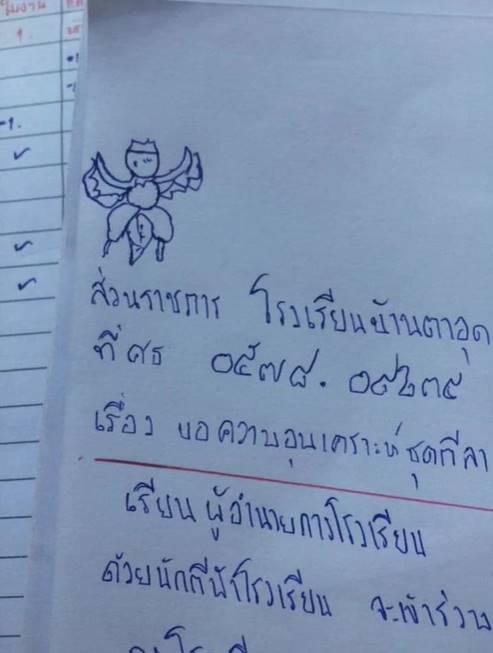 ใบงาน
1.
-1.
ส่วนราชการ โรงเรียนบ้านตาอุด
ที่ ศธ ๐๕๗๘.
เรื่อง ขอความอนุเคราะห์ชุดกีฬา
เรียน ผู้อำนวยการโรงเรียน
ด้วยนักกีฬาโรงเรียน จะเข้าร่วม